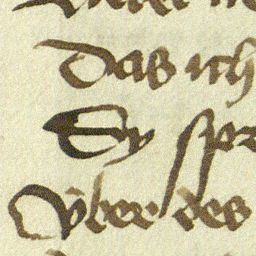 Das ich
Sy spr
Vber des